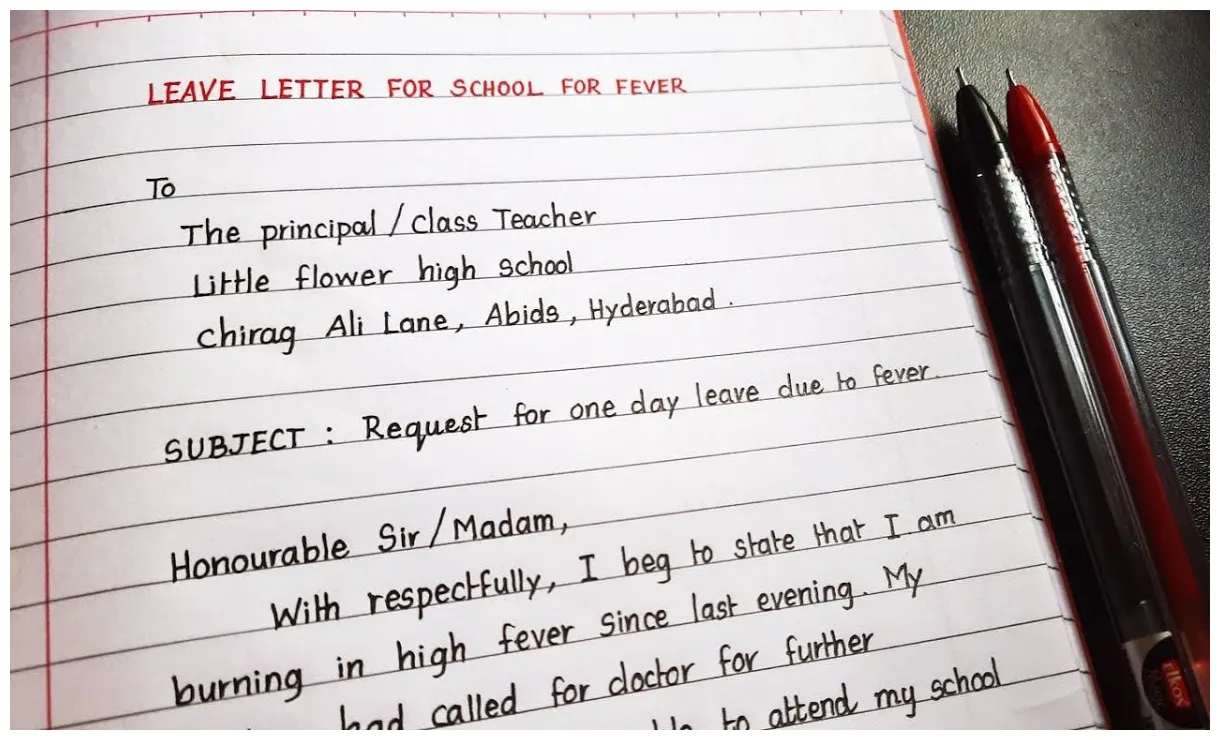 LEAVE LETTER FOR SCHOOL FOR FEVER
To
The principal / class Teacher
Little flower high school
chirag Ali Lane, Abids, Hyderabad.
SUBJECT : Request for one day leave due to fever.
Honourable Sir/Madam,
With respectfully, I beg to state that I am
burning in high fever since last evening. My
had called for doctor for further
to attend my school
Elkos